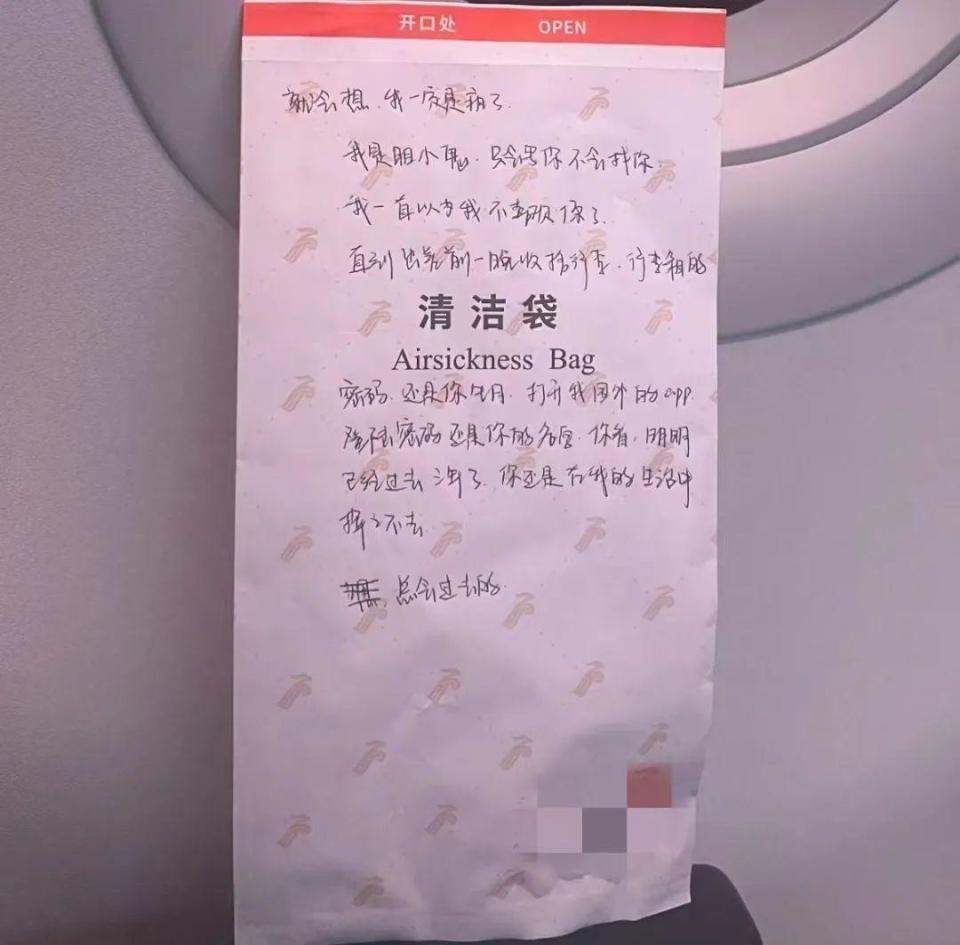 开口处 OPEN
就会想,我一定是病了.
我是胆小鬼.只会写你不会找你
我一直以为我不喜欢你了.
直到出差前一晚收拾行李.行李箱的
清洁袋
Airsickness Bag
密码.还是你生日.打开我国外的app.
登陆密码还是你的名字.你看,明明
已经过去三年了.你还是在我的生活中
挥之不去
总会过去的.